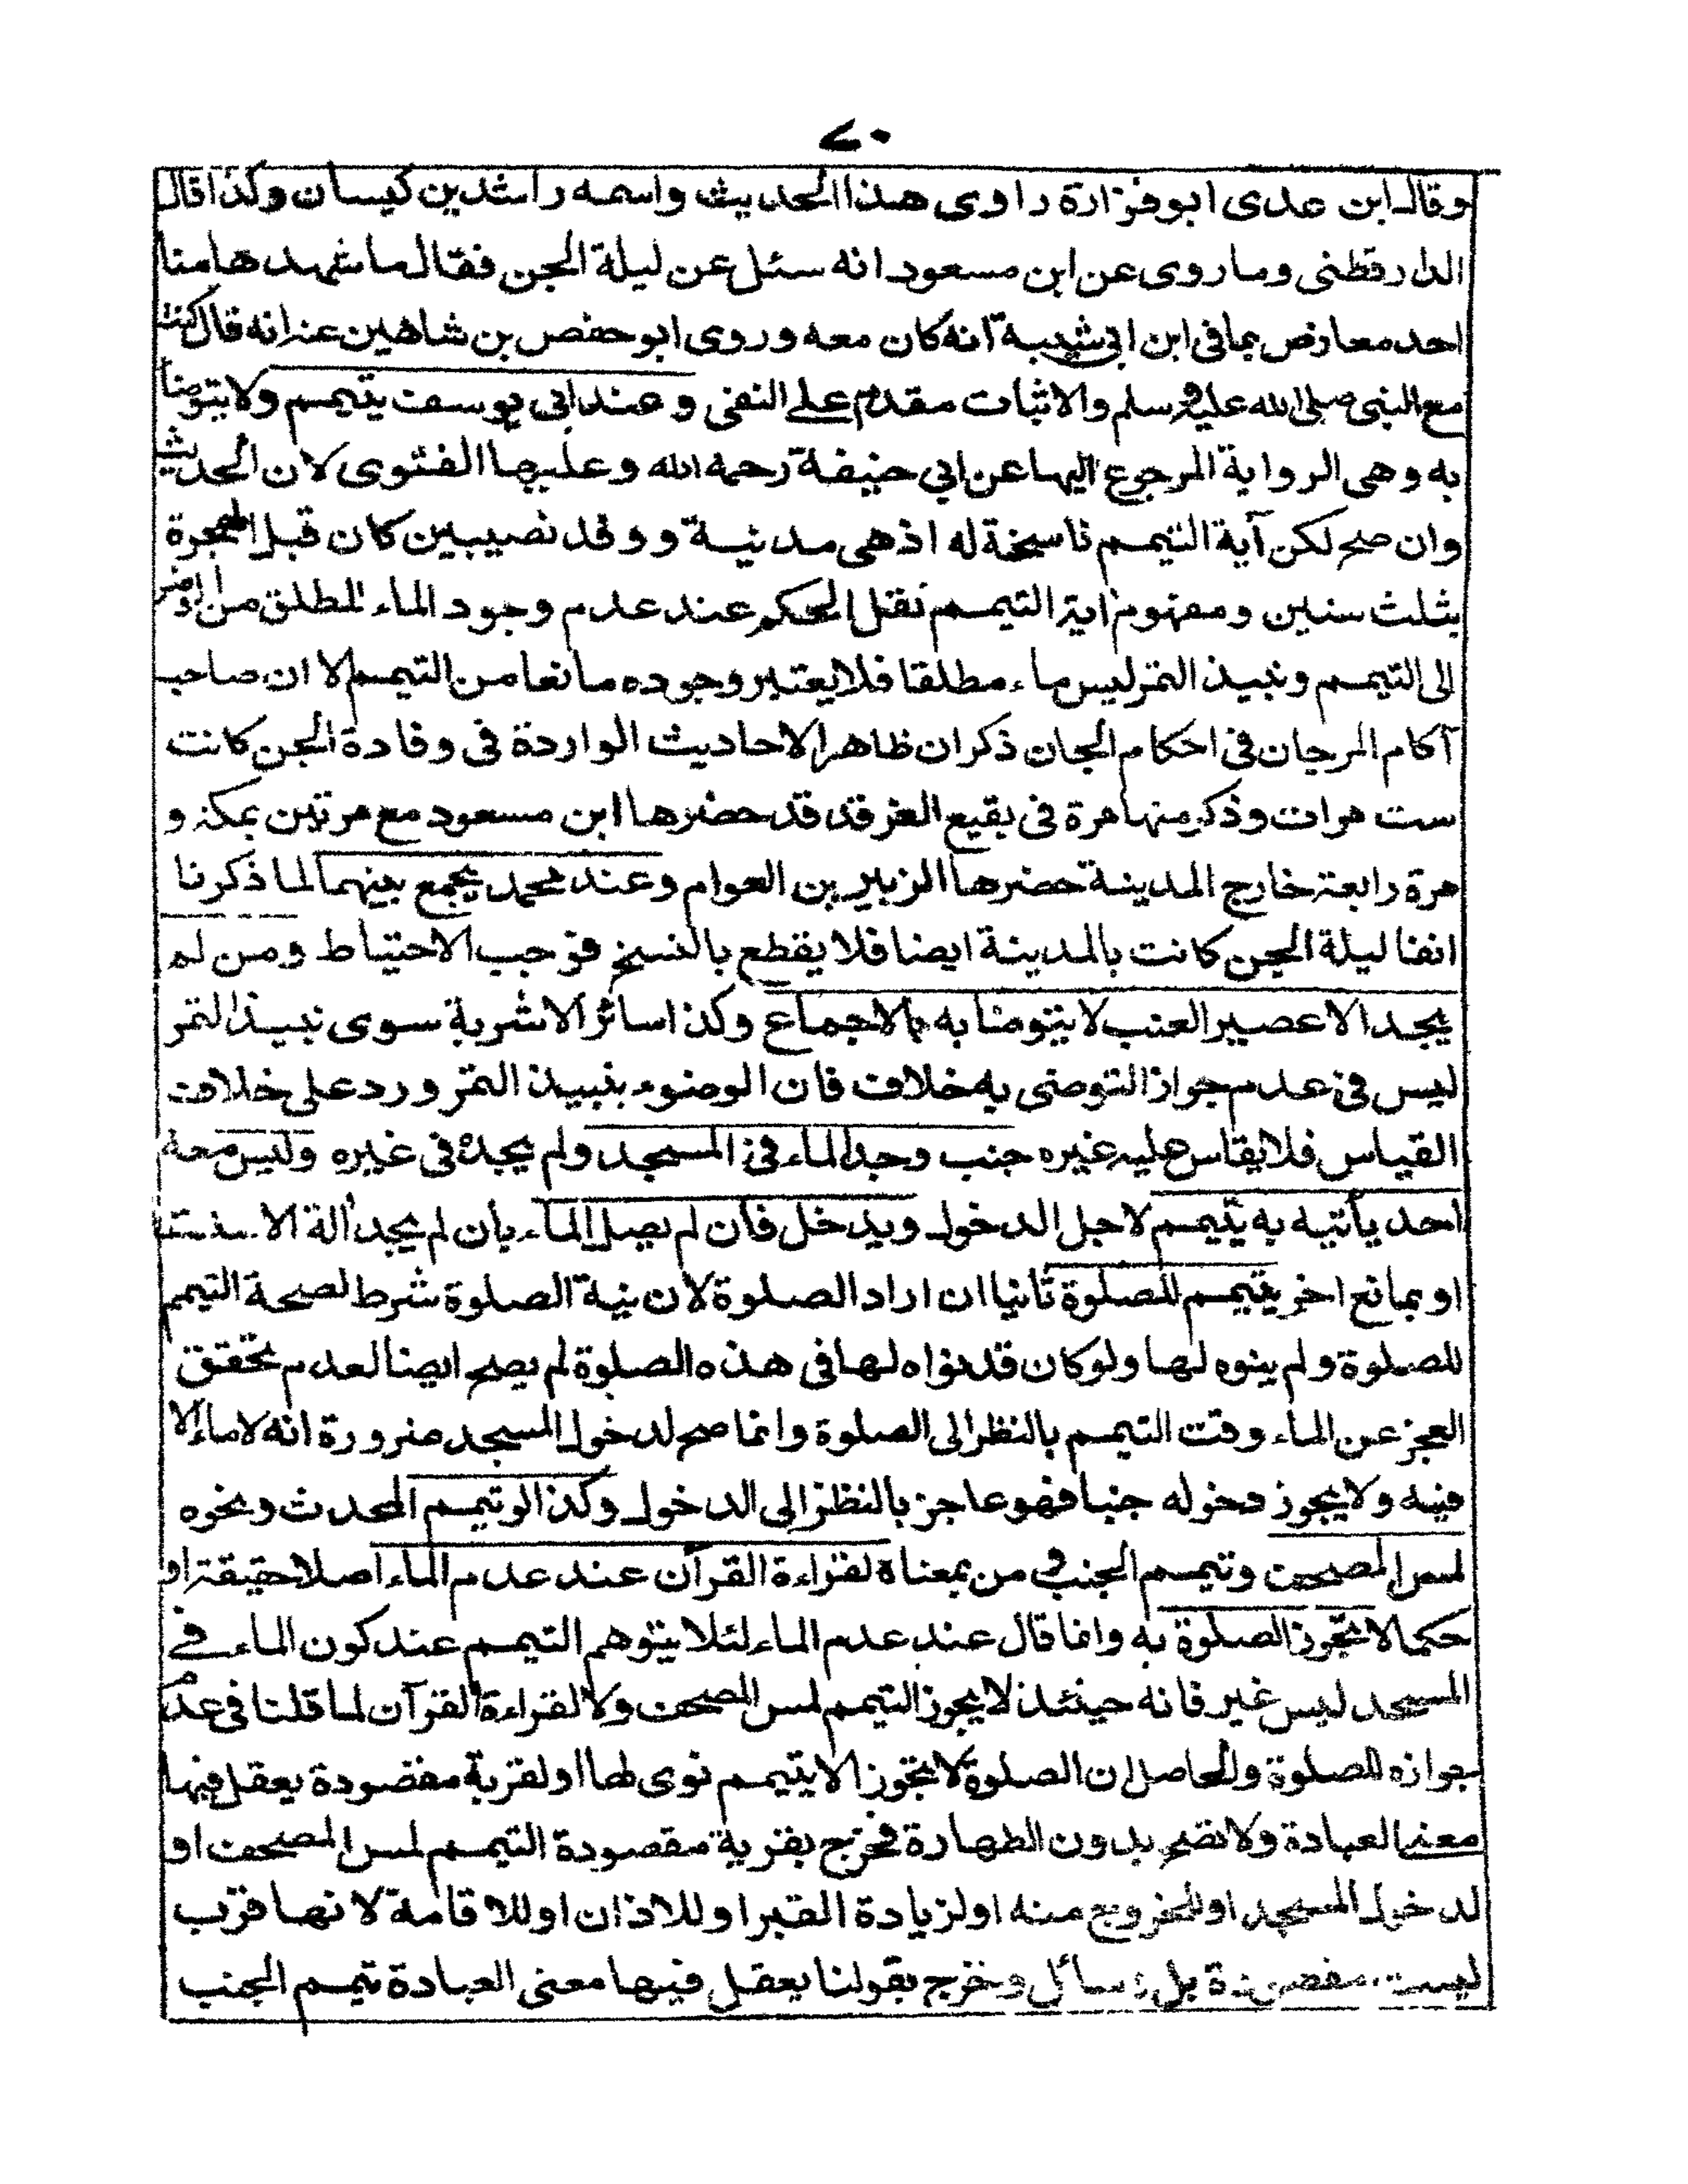 ٧٠
وقال ابن عدى ابو فزارة راوى هذا الحديث واسمه راشد بن كيسان وكذا قال
الدارقطنى وما روى عن ابن مسعود انه سئل عن ليلة الجن فقال ما شهدها منا
احد معارض بما فى ابن ابى شيبة انه كان معه وروى ابو حفص بن شاهين عنه انه قال كنت
مع النبى صلى الله عليه وسلم والاثبات مقدم على النفى وعند ابى يوسف يتيمم ولا يتوضأ
به وهى الرواية المرجوع اليها عن ابى حنيفة رحمه الله وعليها الفتوى لان الحديث
وان صح لكن آية التيمم ناسخة له اذ هى مدنية ووفد نصيبين كان قبل الهجرة
بثلث سنين ومفهوم اية التيمم نقل الحكم عند عدم وجود الماء المطلق من
الى التيمم ونبيذ التمر ليس ماء مطلقا فلا يعتبر وجوده مانعا من التيمم الا ان صاحب
آكام المرجان فى احكام الجان ذكر ان ظاهر الاحاديث الواردة فى وفادة الجن كانت
ست مرات وذكر منها مرة فى بقيع الغرقد قد حضرها ابن مسعود مع مرتين بمكة و
مرة رابعة خارج المدينة حضرها الزبير بن العوام وعند محمد يجمع بينهما لما ذكرنا
انفا ليلة الجن كانت بالمدينة ايضا فلا يقطع بالنسخ فوجب الاحتياط ومن لم
يجد الا عصير العنب لا يتوضأ به بالاجماع وكذا سائر الاشربة سوى نبيذ التمر
ليس فى عدم جواز التوضى به خلاف فان الوضوء بنبيذ التمر ورد على خلاف
القياس فلا يقاس عليه غيره جنب وجد الماء فى المسجد ولم يجده فى غيره وليس معه
احد يأتيه به يتيمم لاجل الدخول ويدخل فان لم يصل الماء بان لم يجد ألة
او بمانع اخر يتيمم للصلوة ثانيا ان اراد الصلوة لان نية الصلوة شرط لصحة التيمم
للصلوة ولم ينوه لها ولو كان قد نواه لها فى هذه الصلوة لم يصح ايضا لعدم تحقق
العجز عن الماء وقت التيمم بالنظر الى الصلوة وانما صح لدخول المسجد ضرورة انه لا ماء الا
فيه ولا يجوز دخوله جنبا فهو عاجز بالنظر الى الدخول وكذا لو تيمم المحدث ونحوه
لمس المصحف وتيمم الجنب فى من بمعناه لقراءة القرآن عند عدم الماء اصلا حقيقة او
حكما لا تجوز الصلوة به وانما قال عند عدم الماء لئلا يتوهم التيمم عند كون الماء فى
المسجد ليس غير فانه حينئذ لا يجوز التيمم لمس المصحف ولا لقراءة القرآن لما قلنا فى عدم
جوازه للصلوة والحاصل ان الصلوة لا تجوز الا بتيمم نوى لها او لقربة مقصودة يعقل فيها
معنى العبادة ولا تصح بدون الطهارة فخرج بقربة مقصودة التيمم لمس المصحف او
لدخول المسجد او للخروج منه او لزيادة القبر او للاذان او للاقامة لانها قرب
ليست مقصودة بل وسائل وخرج بقولنا يعقل فيها معنى العبادة تيمم الجنب